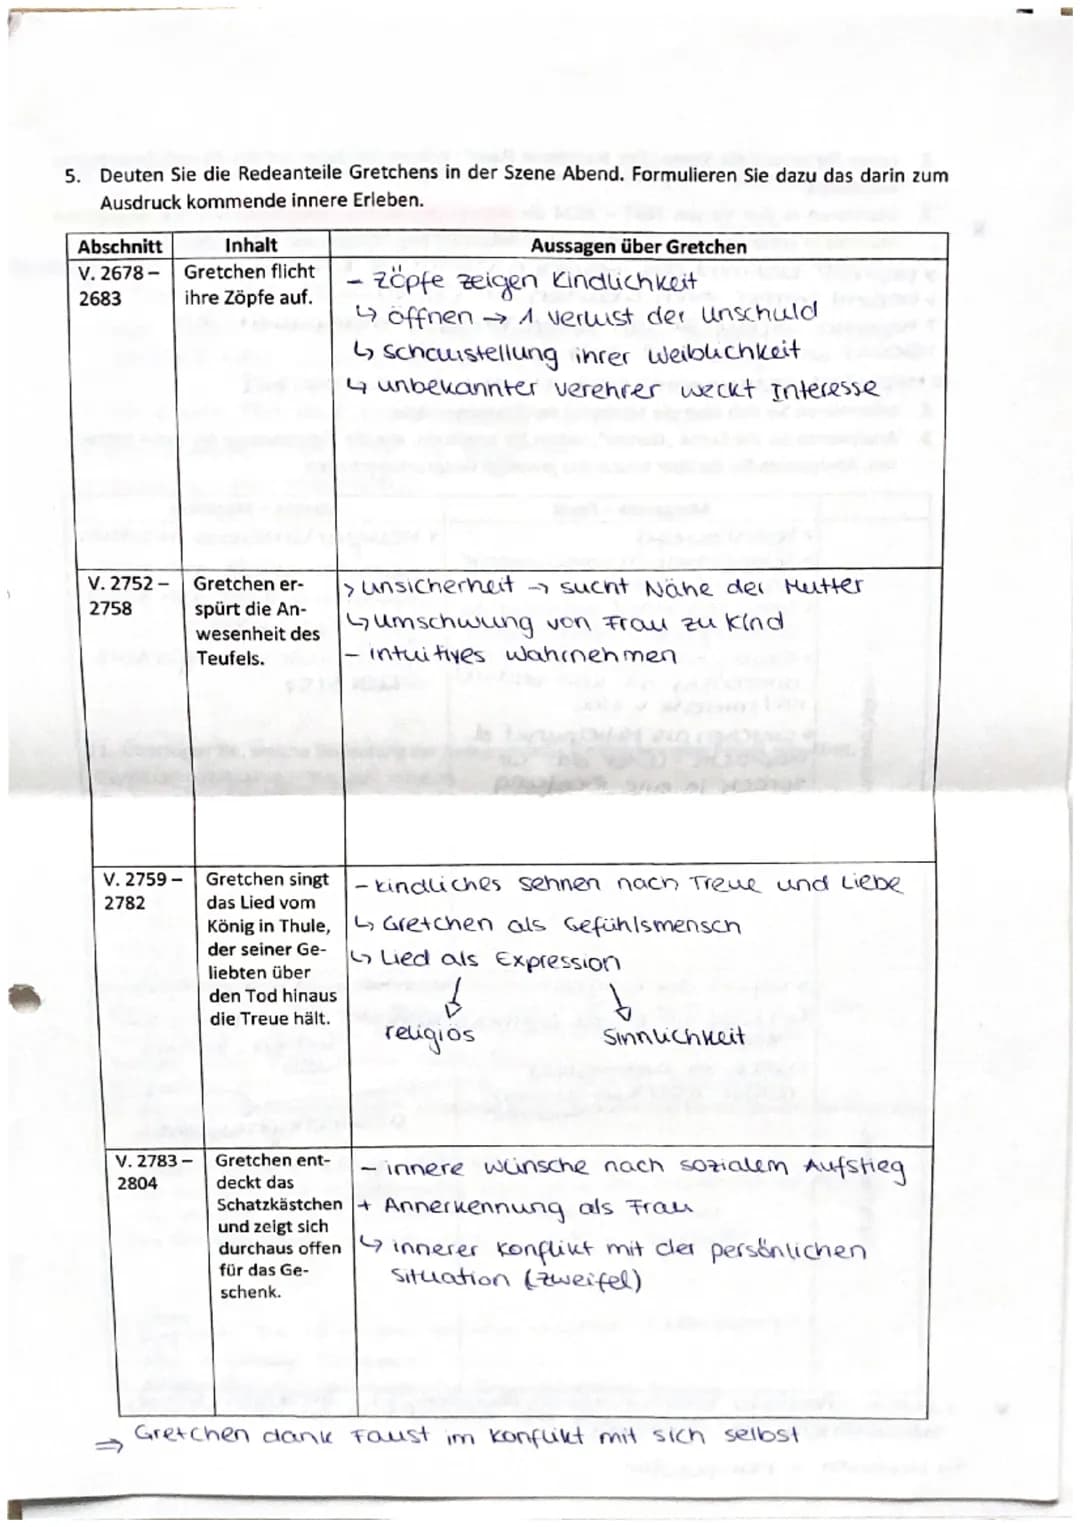 5. Deuten Sie die Redeanteile Gretchens in der Szene Abend. Formulieren Sie dazu das darin zum
Ausdruck kommende innere Erleben.
Abschnitt Inhalt Aussagen über Gretchen
V. 2678 –
2683
Gretchen flicht
ihre Zöpfe auf.
- Zöpfe zeigen Kindlichkeit
↳ öffnen → 1. verlust der unschuld
↳ schaustellung ihrer Weiblichkeit
↳ unbekannter verehrer weckt Interesse
V. 2752 –
2758
Gretchen er-
spürt die An-
wesenheit des
Teufels.
> unsicherheit → sucht Nähe der Mutter
↳ umschwung von Frau zu Kind
- intuitives wahrnehmen
V. 2759 –
2782
Gretchen singt
das Lied vom
König in Thule,
der seiner Ge-
liebten über
den Tod hinaus
die Treue hält.
- kindliches sehnen nach Treue und Liebe
↳ Gretchen als Gefühlsmensch
↳ Lied als Expression
↓ ↓
religiös Sinnlichkeit
V. 2783 –
2804
Gretchen ent-
deckt das
Schatzkästchen
und zeigt sich
durchaus offen
für das Ge-
schenk.
- innere wünsche nach sozialem Aufstieg
+ Annerkennung als Frau
↳ innerer Konflikt mit der persönlichen
Situation (zweifel)
⇒ Gretchen dank Faust im Konflikt mit sich selbst